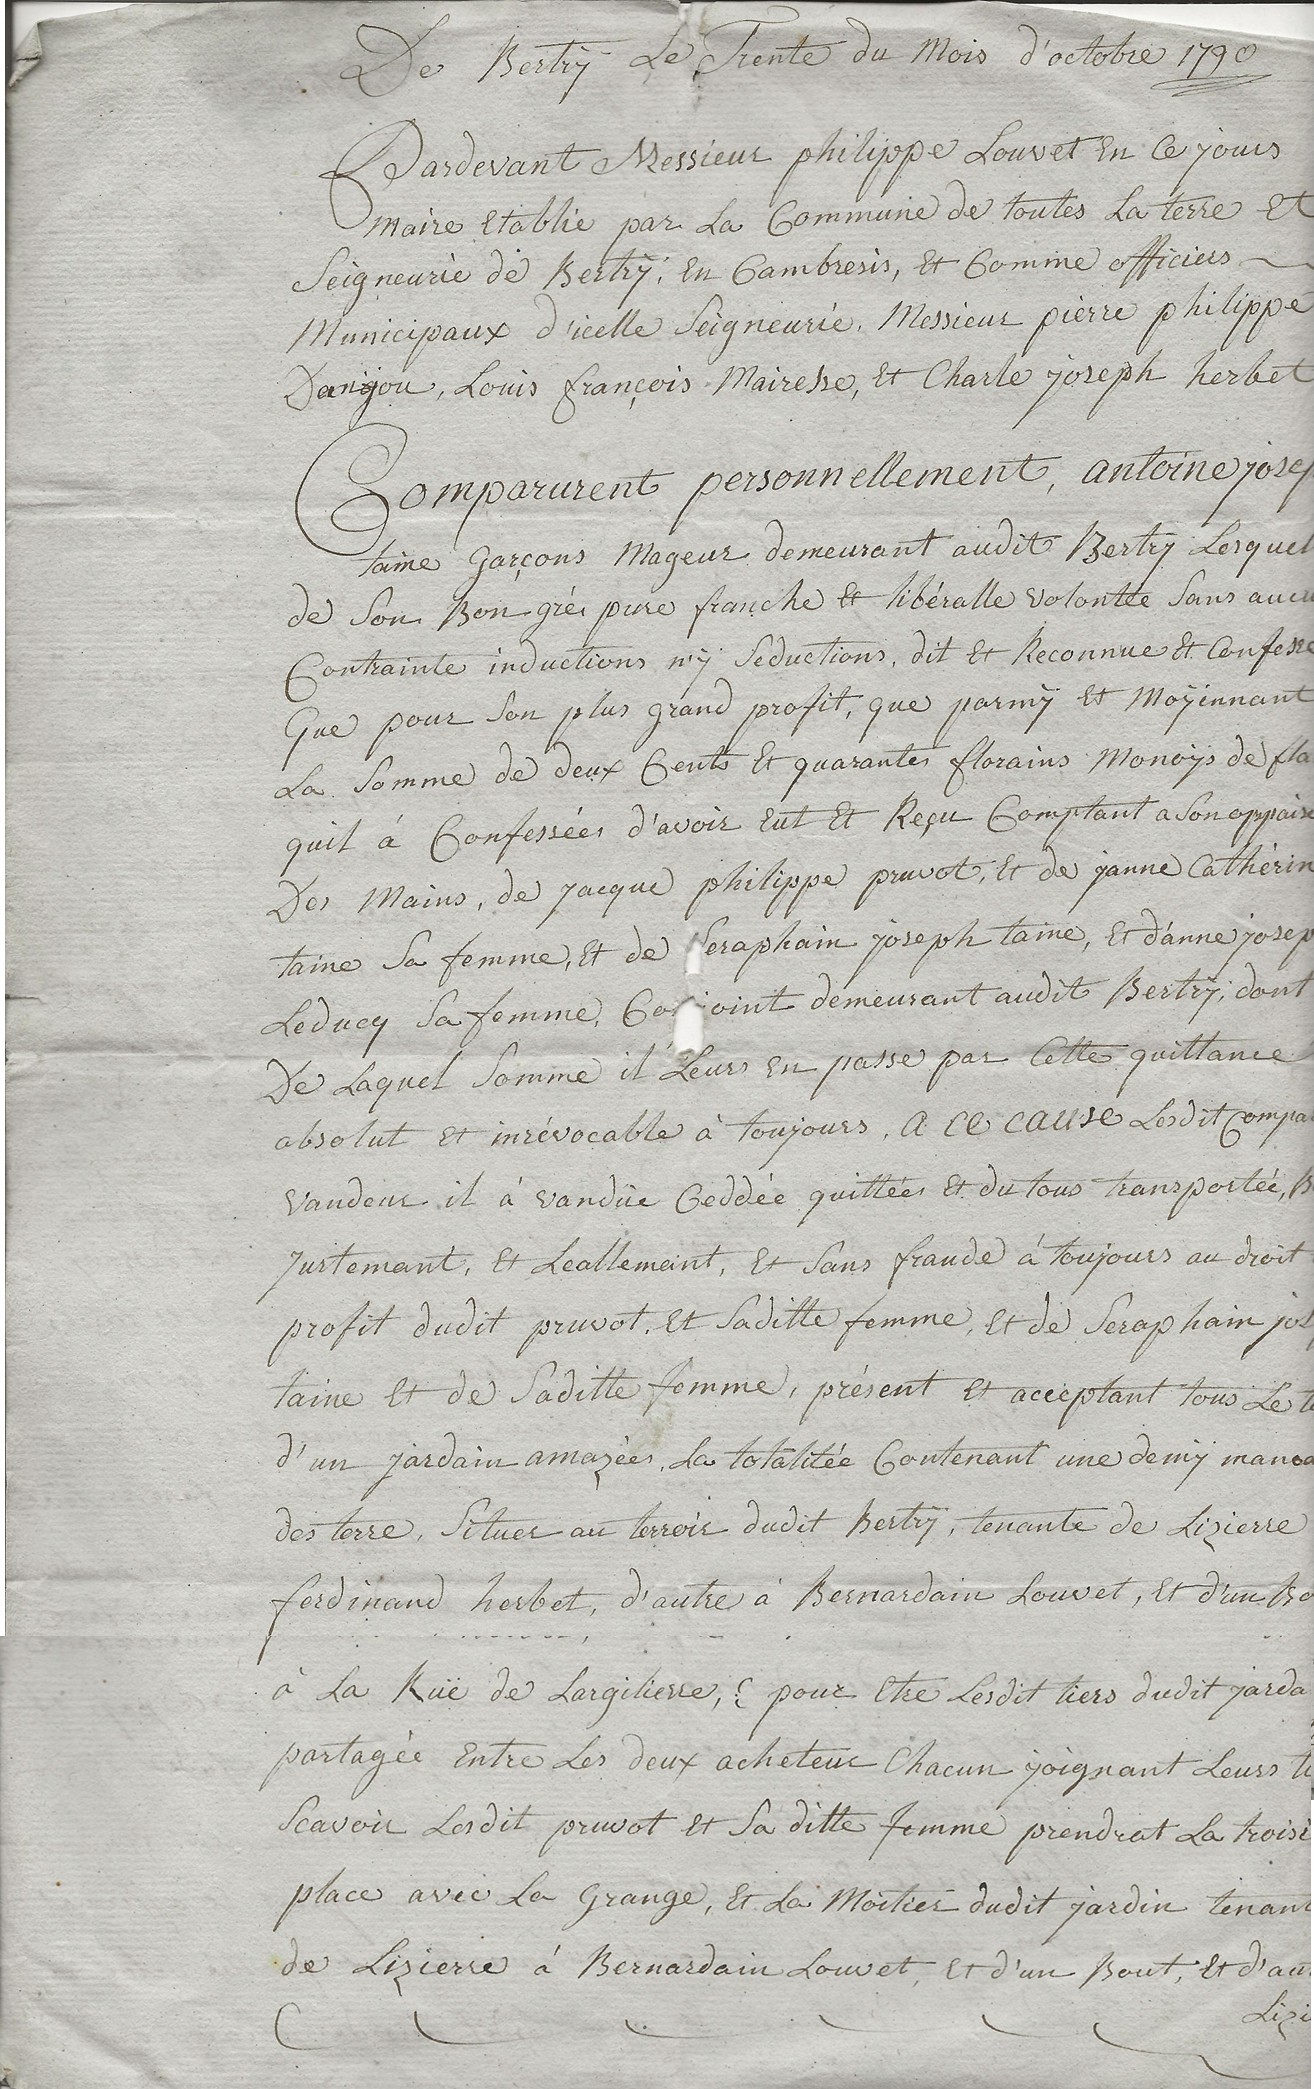 De Bertrÿ Le Trente du Mois d'octobre 1790
Pardevant Messieur philippe Louvet En Ce jours
maire Etablie par La Commune de toutes La terre Et
Seigneurie de Bertrÿ, En Cambresis, Et Comme officiers
Municipaux d'icelle Seigneurie, Messieur pierre philippe
Danjou, Louis françois Mairesse, Et Charle joseph herbet
Comparurent personnellement, antoine josep
taine Garçons Mageur demeurant audit Bertrÿ Lesquel
de Son Bon grées pure franche Et libéralle volontée Sans aucu
Contrainte inductions n'ÿ Seductions, dit Et Reconnue Et Confesse
Que pour Son plus grand profit, que parmÿ Et Moÿinnant
La Somme de deux Cents Et quarantes florains Monoÿs de fla
quil á Confessées d'avoir Eut Et Reçu Comptant a Son appaise
Des Mains, de Jacque philippe pruvot, Et de janne Cathérin
taine Sa femme, Et de Seraphain joseph taine, Et d'anne josep
Leducq Sa femme, Conjoint demeurant audit Bertrÿ, dont
De Laquel Somme il Leurs En passe par Cette quittance
absolut Et inrévocable à toujours, A CE CAUSE Lesdit Compa
Vandeur il á vandûe Ceddée quittées Et du tous transportée, B
Justemant, Et Leallemeint, Et Sans fraude á toujours au droit
profit dudit pruvot, Et Saditte femme, Et de Seraphain jos
taine Et de Saditte femme, présent Et acceptant tous Le t
d'un jardain amazées, La totalitée Contenant une demÿ manca
des terre, Situer au terroir dudit Bertrÿ, tenante de Lizierre
ferdinand herbet, d'autre á Bernardain Louvet, Et d'un Bo
à La Ruë de Largilierre, pour Etre Lesdit tiers dudit jarda
partagée Entre Les deux acheteur Chacun joignant Leurs ti
Scavoir Lesdit pruvot Et Sa ditte femme prendrat La troisi
place avec La Grange, Et La Moitier dudit jardin tenant
de Lizierre á Bernardain Louvet, Et d'un Bout, Et d'au
Lizi